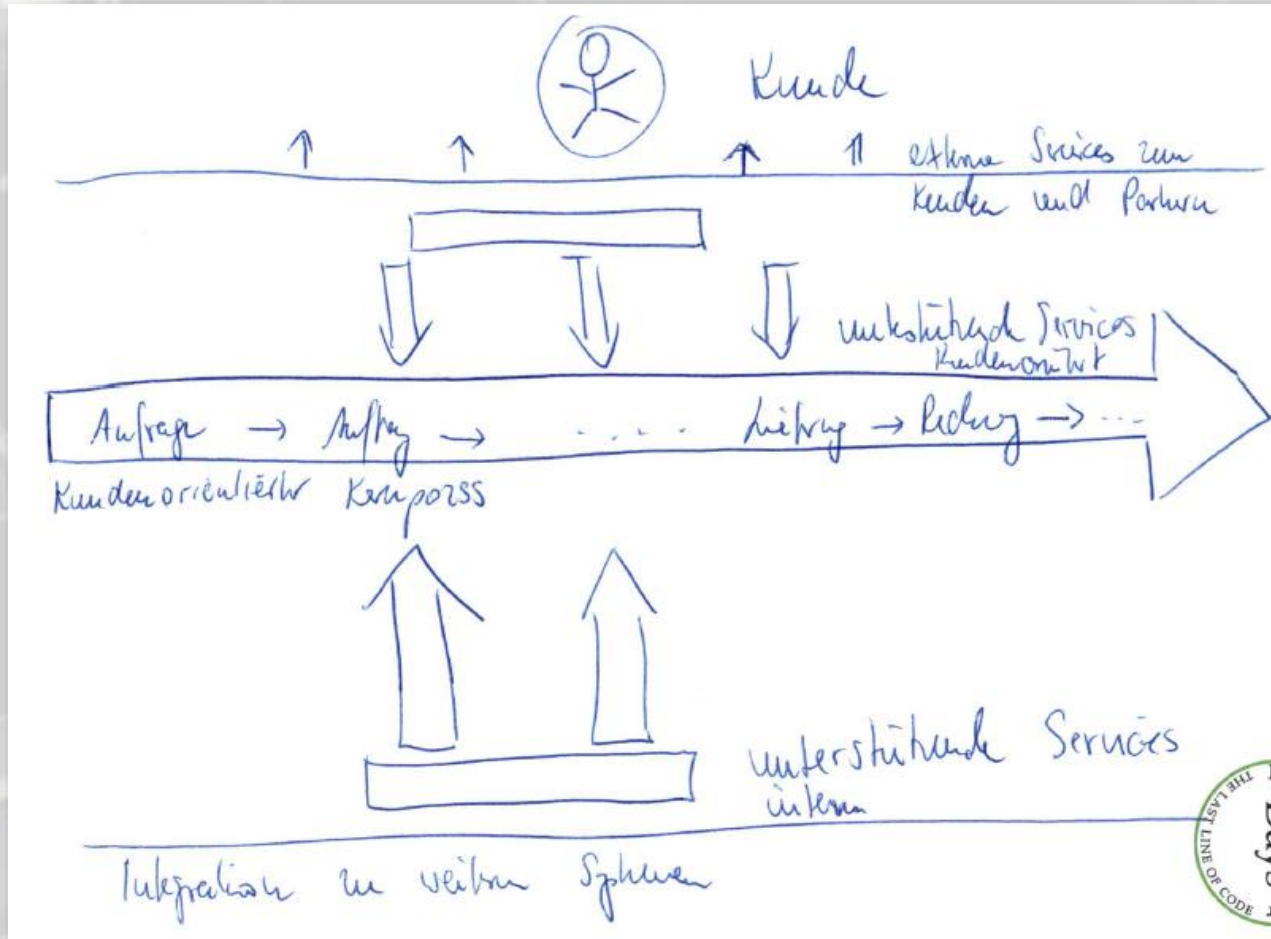 Kunde
externe Services zum
Kunden und Partnern
unterstützende Services
Kundenorientiert
Anfrage → Auftrag → ..... Lieferung → Rechnung → ...
Kundenorientierter Kernprozess
unterstützende Services
intern
Integration zu weiteren Systemen
THE LAST LINE OF CODE
Days